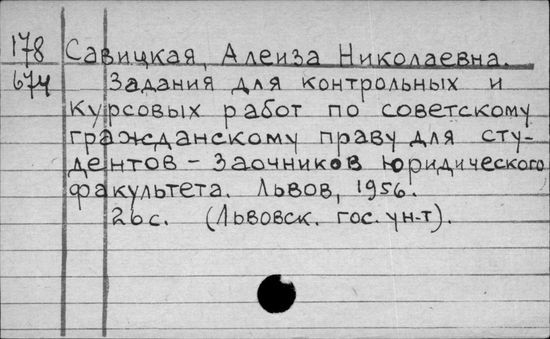 178 Савицкая, Алеиза Николаевна.
674 Задания для контрольных и
курсовых работ по советскому
гражданскому праву для сту-
дентов - заочников юридического
факультета. Львов, 1956.
26 с. (Львовск. гос. ун-т).